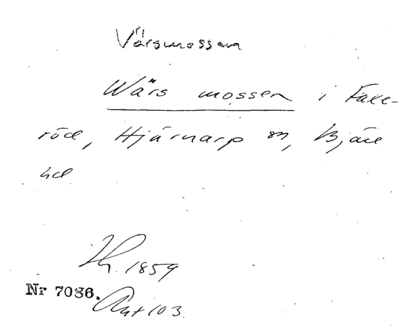 Vårsmossen
Wärs mossen i Faxe-
röd, Hjärnarp sn, Bjäre
hd
1859
Nr 7086.
Ant 103.